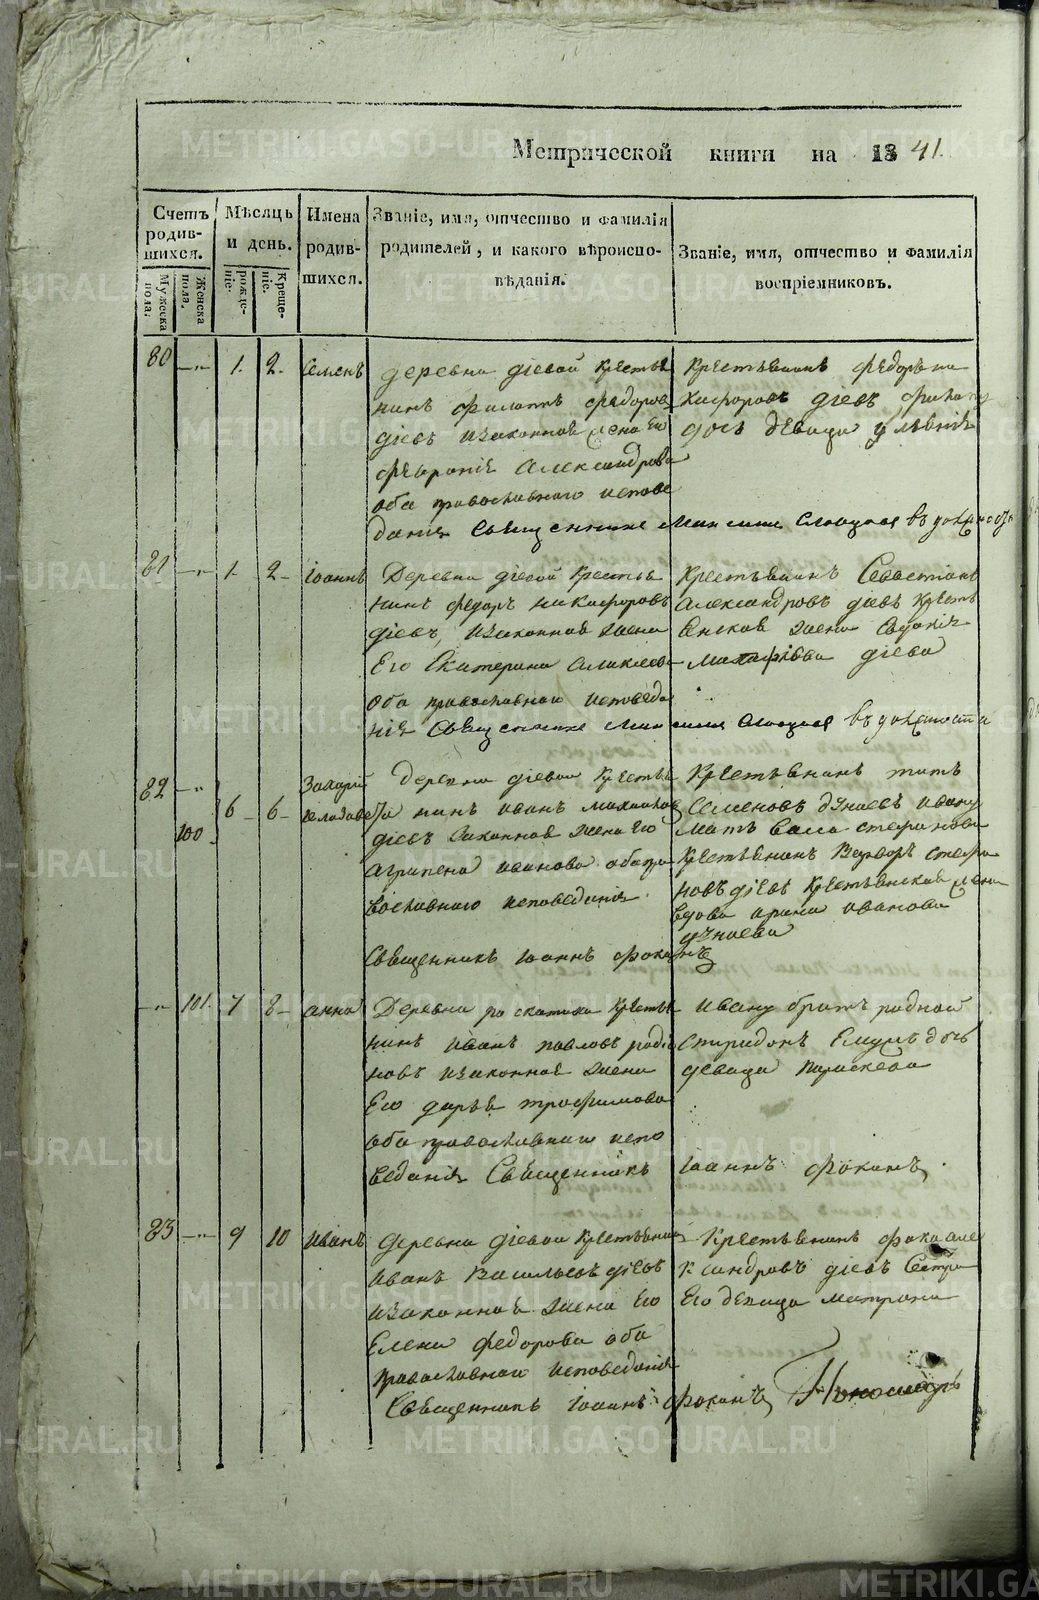 Метрической книги на 1841.
Счетъ родив-
шихся.
Мужеска пола.
Женска пола.
Мѣсяцъ и день.
рожде-
ніе.
Креще-
ніе.
Имена родив-
шихся.
Званіе, имя, отчество и фамилія
родителей, и какого вѣроиспо-
вѣданія.
Званіе, имя, отчество и фамилія
воспріемниковъ.
80 —„— 1. 2. Семенъ
деревни діевой крестья
нинъ Филатъ Федоров
діевъ изаконная жена Его
Александрова
оба православнаго испове
данія Священникъ
Крестьянинъ Федоръ ни
кифоровъ діевъ
дочь девица
81 —„— 1. 2. Іоаннъ
Деревни діевой Крестья
нинъ Федоръ Никифоровъ
діевъ, изаконная жена
Его Екатерина Алексеева
оба православнаго исповеда
нія Священникъ
Крестьянинъ Севастіанъ
Александровъ діевъ Кресть
янская жена Евдокія
діева
82 —„— 100 6 6 Захарій
Деревни діевой Крестья
нинъ Иванъ Михайлов
діевъ законная жена Его
Агрипена Иванова оба пра
вославнаго исповеданія
Священникъ Іоаннъ Фокинъ
Крестьянинъ титъ
Семеновъ дунаевъ Ивану
мать Стефанова
Крестьянинъ Стефа
новъ діевъ Крестьянская жена
вдова Ирина Иванова
дунаева
—„— 101. 7 8 Анна
Деревни Раскатиха Крестья
нинъ Иванъ Павловъ Родіо
новъ изаконная жена
Его дарья трофимова
оба православнаго испо
веданія Священникъ Іоаннъ Фокинъ
Ивану братъ родной
Спиридонъ Ему дочь
девица Параскева
83 —„— 9 10 Иванъ
деревни діевой Крестьянин
Иванъ Васильевъ діевъ
изаконная жена Его
Елена Федорова оба
православнаго исповеданія
Священникъ Іоаннъ Фокинъ
Крестьянинъ Фока Але
ксандровъ діевъ Сестра
Его девица Матрона